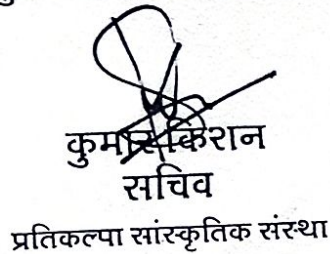 कुमार किशन
सचिव
प्रतिकल्पा सांस्कृतिक संस्था